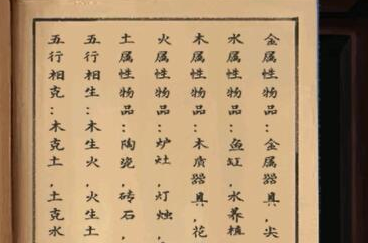 金属性物品:金属器具,尖
水属性物品:鱼缸,水养植
木属性物品:木质器具,花
火属性物品:炉灶,灯烛,
土属性物品:陶瓷,砖石,
五行相生:木生火,火生土
五行相克:木克土,土克水